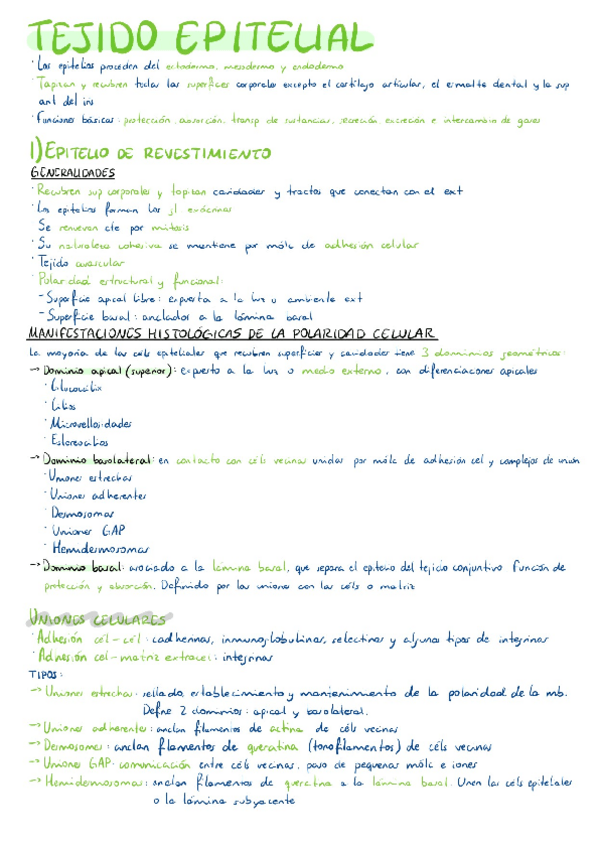 TEJIDO EPITELIAL
· Los epitelios proceden del ectodermo, mesodermo y endodermo
· Tapizan y recubren todas las superficies corporales excepto el cartílago articular, el esmalte dental y la sup
ant del iris
· Funciones básicas: protección, absorción, transp de sustancias, secreción, excreción e intercambio de gases
1) EPITELIO DE REVESTIMIENTO
GENERALIDADES
· Recubren sup corporales y tapizan cavidades y tractos que conectan con el ext
· Los epitelios forman las gl exócrinas
Se renuevan cte por mitosis
· Su naturaleza cohesiva se mantiene por móle de adhesión celular
· Tejido avascular
· Polaridad estructural y funcional:
- Superficie apical libre: expuesta a la luz o ambiente ext
- Superficie basal: anclados a la lámina basal
MANIFESTACIONES HISTOLÓGICAS DE LA POLARIDAD CELULAR
La mayoría de las céls epiteliales que recubren superficies y cavidades tiene 3 dominios geométricos:
-> Dominio apical (superior): expuesto a la luz o medio externo, con diferenciaciones apicales
· Glucocálix
· Cilios
· Microvellosidades
· Estereocilios
-> Dominio basolateral: en contacto con céls vecinas unidas por móle de adhesión cel y complejos de unión
· Uniones estrechas
· Uniones adherentes
· Desmosomas
· Uniones GAP
· Hemidesmosomas
-> Dominio basal: asociado a la lámina basal, que separa el epitelio del tejido conjuntivo. Función de
protección y absorción. Definido por las uniones con las céls o matriz
UNIONES CELULARES
· Adhesión cél-cél: cadherinas, inmunoglobulinas, selectinas y algunos tipos de integrinas
· Adhesión cél-matriz extracel: integrinas
TIPOS:
-> Uniones estrechas: sellado, establecimiento y mantenimiento de la polaridad de la mb.
Define 2 dominios: apical y basolateral.
-> Uniones adherentes: anclan filamentos de actina de céls vecinas
-> Desmosomas: anclan filamentos de queratina (tonofilamentos) de céls vecinas
-> Uniones GAP: comunicación entre céls vecinas, paso de pequeñas móle e iones
-> Hemidesmosomas: anclan filamentos de queratina a la lámina basal. Unen las céls epiteliales
a la lámina subyacente